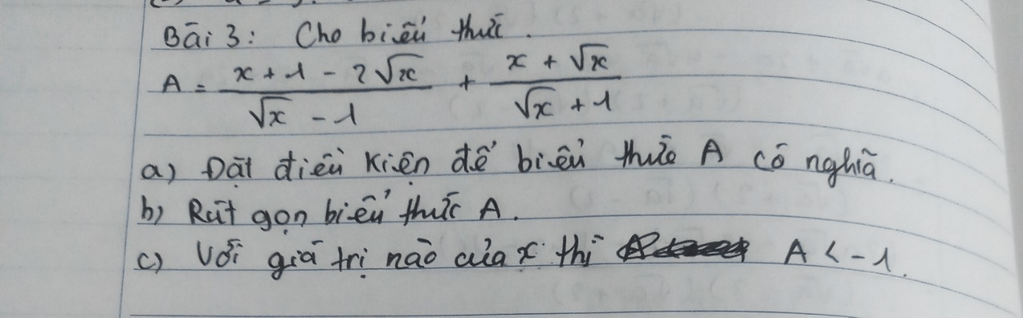 Bài 3: Cho biểu thức.
A = \frac{x + 1 - 2\sqrt{x}}{\sqrt{x} - 1} + \frac{x + \sqrt{x}}{\sqrt{x} + 1}
a) Đặt điều kiện để biểu thức A có nghĩa.
b) Rút gọn biểu thức A.
c) Với giá trị nào của x thì A < -1.